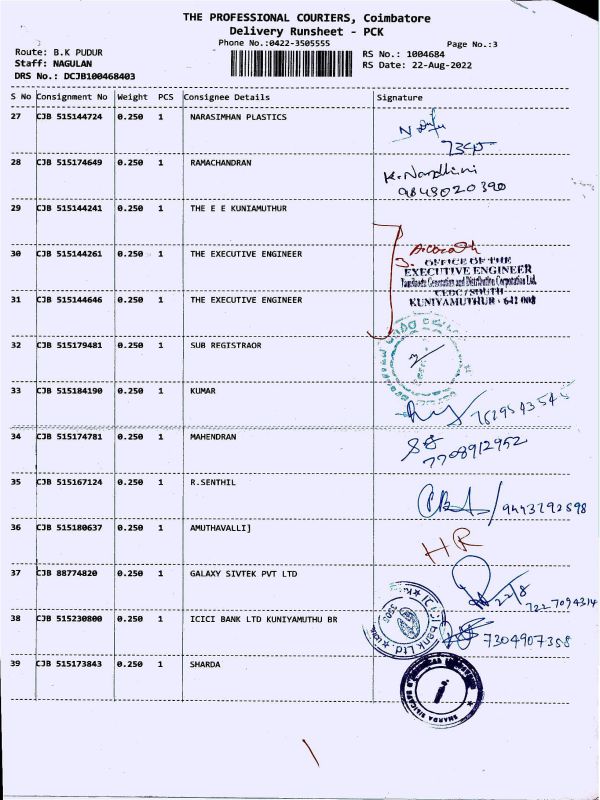 THE PROFESSIONAL COURIERS, Coimbatore
Delivery Runsheet - PCK
Phone No.:0422-3505555
Page No.:3
Route: B.K PUDUR
RS No.: 1004684
Staff: NAGULAN
RS Date: 22-Aug-2022
DRS No.: DCJB100468403
S No Consignment No Weight PCS Consignee Details Signature
27 CJB 515144724 0.250 1 NARASIMHAN PLASTICS
28 CJB 515174649 0.250 1 RAMACHANDRAN K. Nandhini
9843020390
29 CJB 515144241 0.250 1 THE E E KUNIAMUTHUR
30 CJB 515144261 0.250 1 THE EXECUTIVE ENGINEER
3. OFFICE OF THE
EXECUTIVE ENGINEER
Tamilnadu Generation and Distribution Corporation Ltd.
CEDC / SOUTH
KUNIYAMUTHUR - 641 008
31 CJB 515144646 0.250 1 THE EXECUTIVE ENGINEER
32 CJB 515179481 0.250 1 SUB REGISTRAOR
33 CJB 515184190 0.250 1 KUMAR
34 CJB 515174781 0.250 1 MAHENDRAN
7708912952
35 CJB 515167124 0.250 1 R.SENTHIL
36 CJB 515180637 0.250 1 AMUTHAVALLI] HR
37 CJB 88774820 0.250 1 GALAXY SIVTEK PVT LTD
22/8
7227094314
38 CJB 515230800 0.250 1 ICICI BANK LTD KUNIYAMUTHU BR
ICICI bank Ltd.
7304907358
39 CJB 515173843 0.250 1 SHARDA